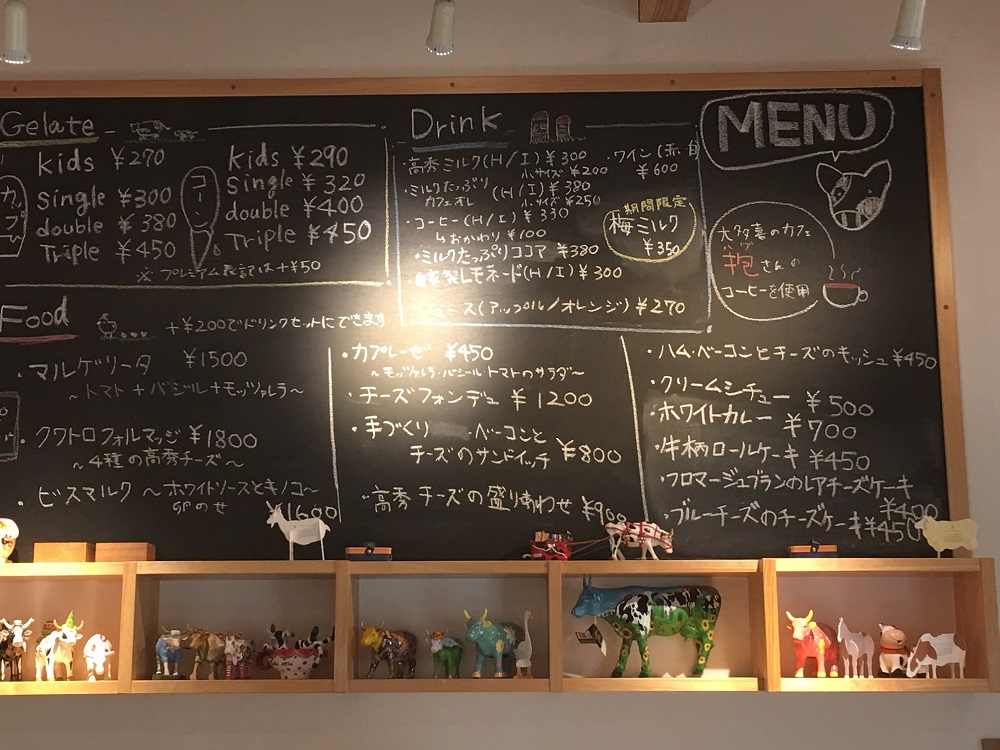 Gelate
Kids ¥270
Single ¥300
double ¥380
Triple ¥450
コーン
Kids ¥290
Single ¥320
double ¥400
Triple ¥450
※プレミアム表記は+¥50
Drink
・高秀ミルク(H/I)¥300
小サイズ ¥200
・ミルクたっぷり
カフェオレ (H/I)¥380
小サイズ ¥250
・コーヒー(H/I) ¥330
↳おかわり ¥100
・ミルクたっぷりココア ¥380
製レモネード(H/I)¥300
ース(アップル/オレンジ)¥270
・ワイン(赤・白
¥600
期間限定
梅ミルク
¥350
MENU
大多喜のカフェ
抱さんの
コーヒーを使用
Food
+¥200でドリンクセットにできます
・マルゲリータ ¥1500
〜トマト+バジル+モッツァレラ〜
・クワトロフォルマッジ ¥1800
〜4種の高秀チーズ〜
・ビスマルク 〜ホワイトソースとキノコ〜
のせ 1600
・カプレーゼ ¥450
〜モッツァレラ・バジル・トマトのサラダ〜
・チーズフォンデュ ¥1200
・手づくり ・ベーコンと
チーズのサンドイッチ ¥800
・高秀チーズの盛りあわせ ¥900
・ハム・ベーコンとチーズのキッシュ ¥450
・クリームシチュー ¥500
・ホワイトカレー ¥700
・牛柄ロールケーキ ¥450
・フロマージュブランのレアチーズケーキ
¥400
・ブルーチーズのチーズケーキ ¥450